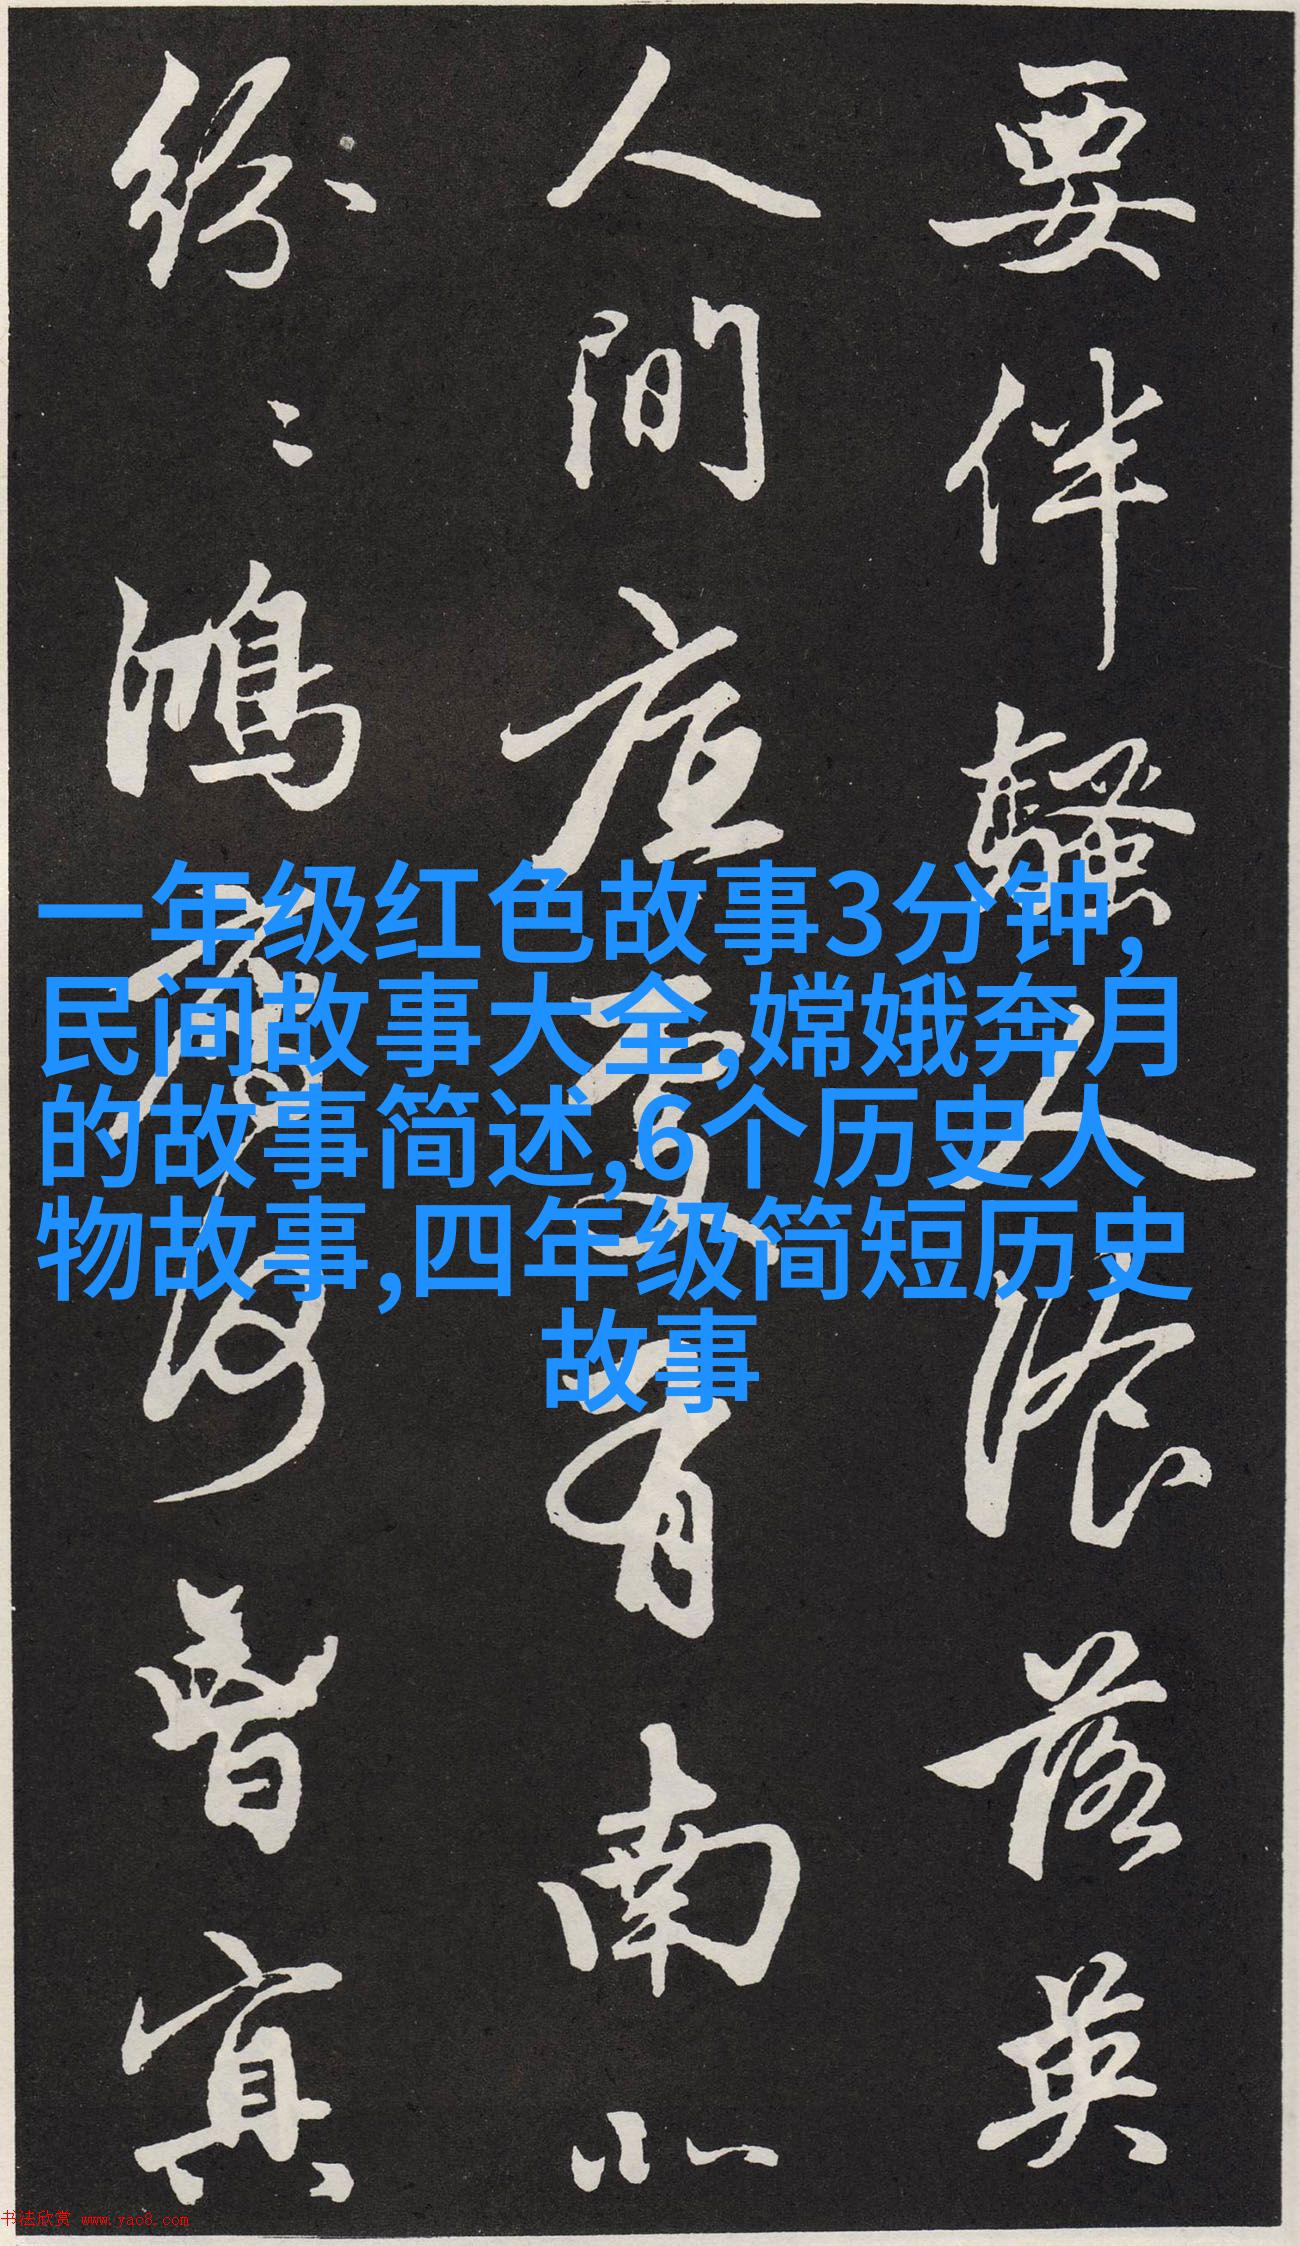 要伴騷人湌落英
人間底處有南北
紛〻鴻鴈何曾冥
一年级红色故事3分钟,
民间故事大全,嫦娥奔月
的故事简述,6个历史人
物故事,四年级简短历史
故事
书法欣赏 www.yac8.com